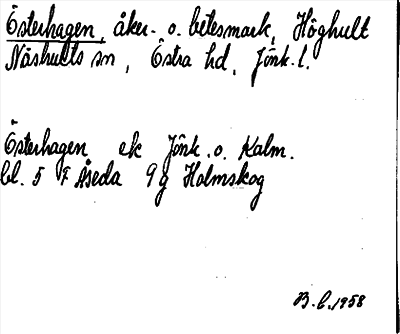 Österhagen, åker- o. betesmark, Höghult
Näshults sn, Östra hd, Jönk. l.
Österhagen ek Jönk. o. Kalm.
bl. 5 F Åseda 9 g Holmskog
B.C. 1958